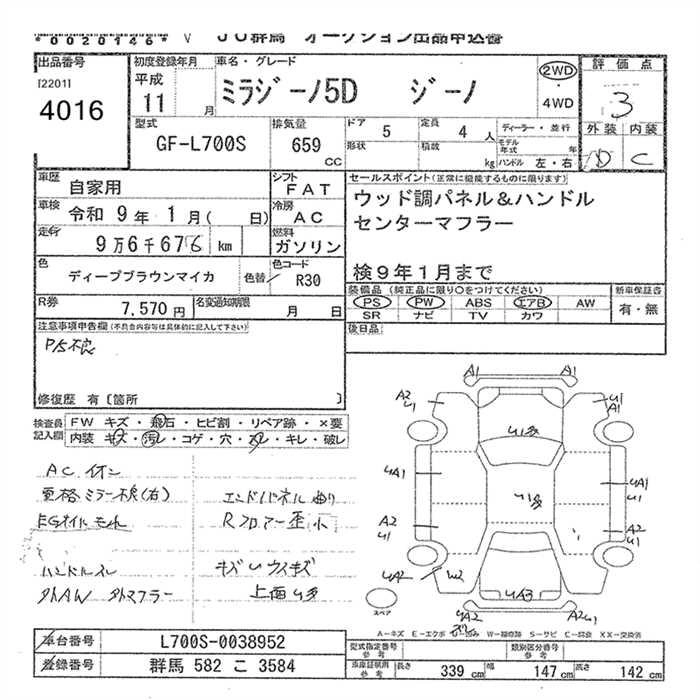 *0020146* V JU群馬 オークション出品申込書
出品番号
[2201]
4016
初度登録年月
平成
11 月
車名・グレード
ミラジーノ5D ジーノ
2WD
・
4WD
評価点
3
外装 内装
D C
型式
GF-L700S
排気量
659
CC
ドア 5
定員 4 人
ディーラー・並行
形状
積載 kg
モデル年式 年
ハンドル 左・右
車歴
自家用
シフト
FAT
車検
令和 9年 1月( 日)
冷房
AC
走行
9万6千676 km
燃料
ガソリン
色
ディープブラウンマイカ
色替
色コード
R30
R券
7,570円
名変通知期限
月 日
セールスポイント(正常に機能するものに限ります)
ウッド調パネル&ハンドル
センターマフラー
検9年1月まで
装備品 (純正品に限り○をつけてください)
PS PW ABS エアB AW
SR ナビ TV カワ
新車保証書
有・無
後日品
注意事項申告欄(不具合内容等は具体的に記入して下さい)
P/S不良
修復歴 有〔箇所 〕
検査員記入欄
FW キズ・飛石・ヒビ割・リペア跡・×要
内装 キズ・汚レ・コゲ・穴・スレ・キレ・破レ
AC イオン
更格ミラー不良(右)
EGオイルもれ
ハンドルスレ
外AW 外マフラー
エンドパネル曲り
Rフロアー歪小
キズUウスキズ
上面U多
A1 A1
A2 U1
U1 A1
U多
UA1
UA1 U1
U多
A2 U1
A2 U1
UA2 W2
UA3
UA2
A2U1
スペア
A-キズ E-エクボ U-凹み W-補修跡 S-サビ C-腐食 XX-交換済
車台番号
L700S-0038952
登録番号
群馬 582 こ 3584
型式指定番号
参考
類別区分番号
参考
車庫証明用
参考
長さ 339 cm
幅 147 cm
高さ 142 cm